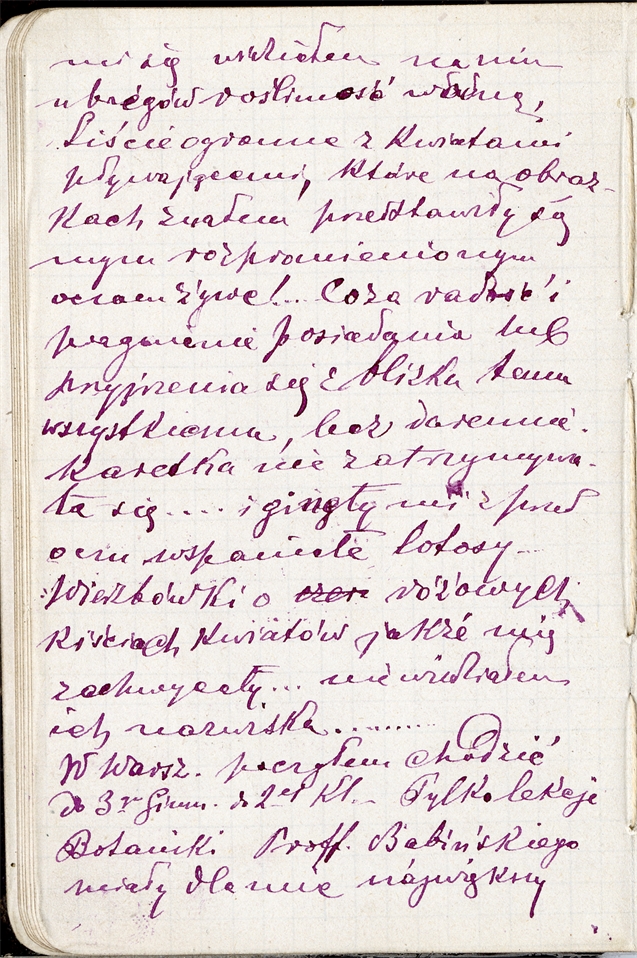 mi się widziałem na nim
u brzegów roślinność wodną,
Liście ogromne z kwiatami
pływającemi, które na obraz-
kach znałem przedstawiły się
mym rozpromienionym
oczom żywe!... Coza radość i
pragnienie posiadania lub
przyjrzenia się z bliska temu
wszystkiemu, lecz daremnie.
Karetka nie zatrzymywa-
ła się.... i ginęły mi z przed
oczu wspaniałe lotosy...
Wierzbówki o różowych
kiściach kwiatów jakże mię
zachwycały... nie wiedziałem
ich nazwiska.........
W Warsz. począłem chodzić
do 3 Gimn. do 2ej Kl. – Tylko lekcje
Botaniki Proff. Babińskiego
miały dla mnie największy